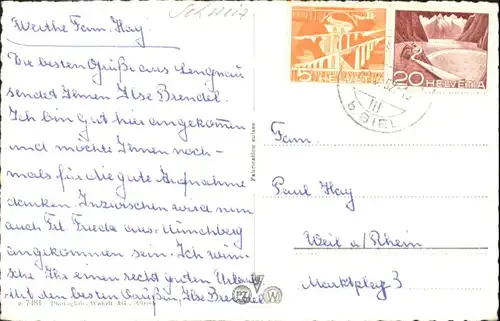 Schweiz
Werthe Fam. Hay,
Die besten Grüße aus Lengnau
sendet Ihnen Ilse Brendel.
Ich bin gut hier angekommen
und möchte Ihnen noch-
mals für die gute Aufnahme
danken. Inzwischen wird nun
auch Frl. Frieda aus Münchberg
angekommen sein. Ich wün-
sche Ihr einen recht guten Urlaub.
Mit den besten Grüßen, Ilse Brendel
a 7481 Photoglob-Wehrli AG., Zürich
Fabrication suisse
PZ W
5 HELVETIA
20 HELVETIA
b. BIEL
Fam.
Paul Hay
Weil a/Rhein
Marktplatz 3